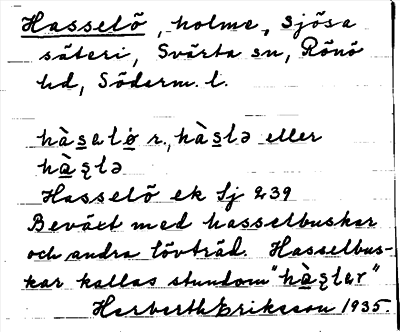 Hasselö, holme, Sjösa
säteri, Svärta sn, Rönö
hd, Söderm. l.
hàsalø̀ r., hàslə eller
hàʂlə
Hasselö ek Sj 239
Beväxt med hasselbuskar
och andra lövträd. Hasselbus-
kar kallas stundom "hàʂlar"
Herberth Eriksson 1935.